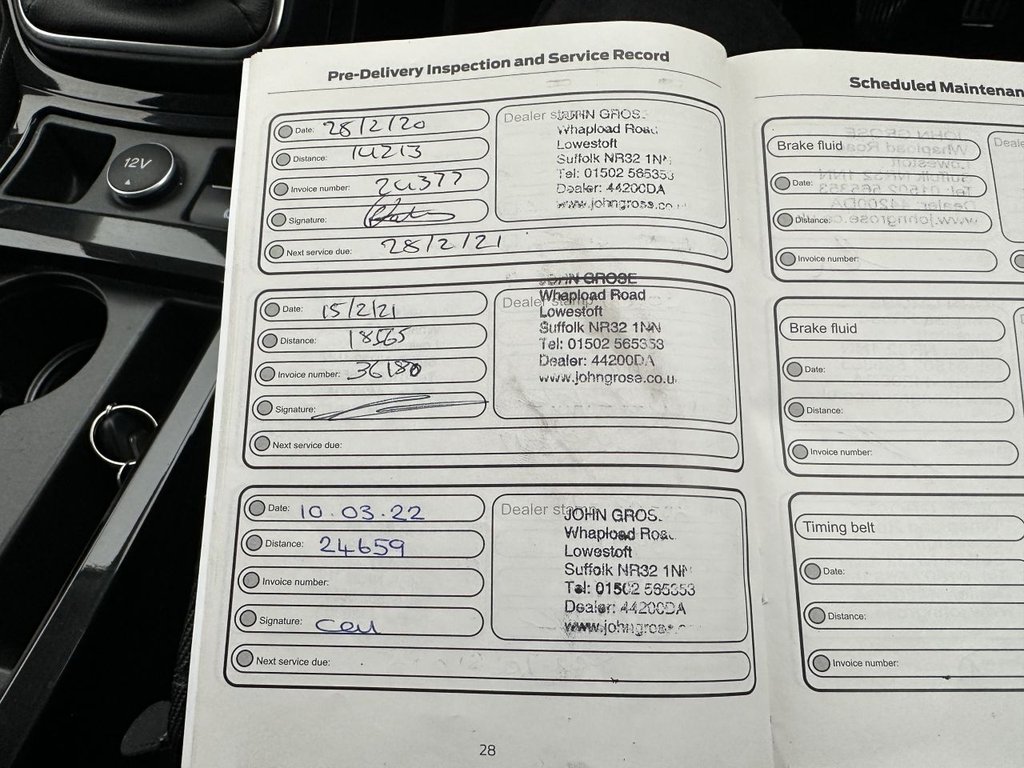 12V
Pre-Delivery Inspection and Service Record
Date: 28/2/20
Distance: 14213
Invoice number: 24377
Signature:
Next service due: 28/2/21
Dealer stamp
JOHN GROSE
Whapload Road
Lowestoft
Suffolk NR32 1NN
Tel: 01502 565353
Dealer: 44200DA
www.johngrose.co.u
Date: 15/2/21
Distance: 18565
Invoice number: 36180
Signature:
Next service due:
Dealer stamp
JOHN GROSE
Whapload Road
Lowestoft
Suffolk NR32 1NN
Tel: 01502 565353
Dealer: 44200DA
www.johngrose.co.u
Date: 10.03.22
Distance: 24659
Invoice number:
Signature:
Next service due:
Dealer stamp
JOHN GROS
Whapload Road
Lowestoft
Suffolk NR32 1NN
Tel: 01502 565353
Dealer: 44200DA
www.johngrose
28
Scheduled Maintenan
Brake fluid
Date:
Distance:
Invoice number:
Deale
Brake fluid
Date:
Distance:
Invoice number:
Timing belt
Date:
Distance:
Invoice number: